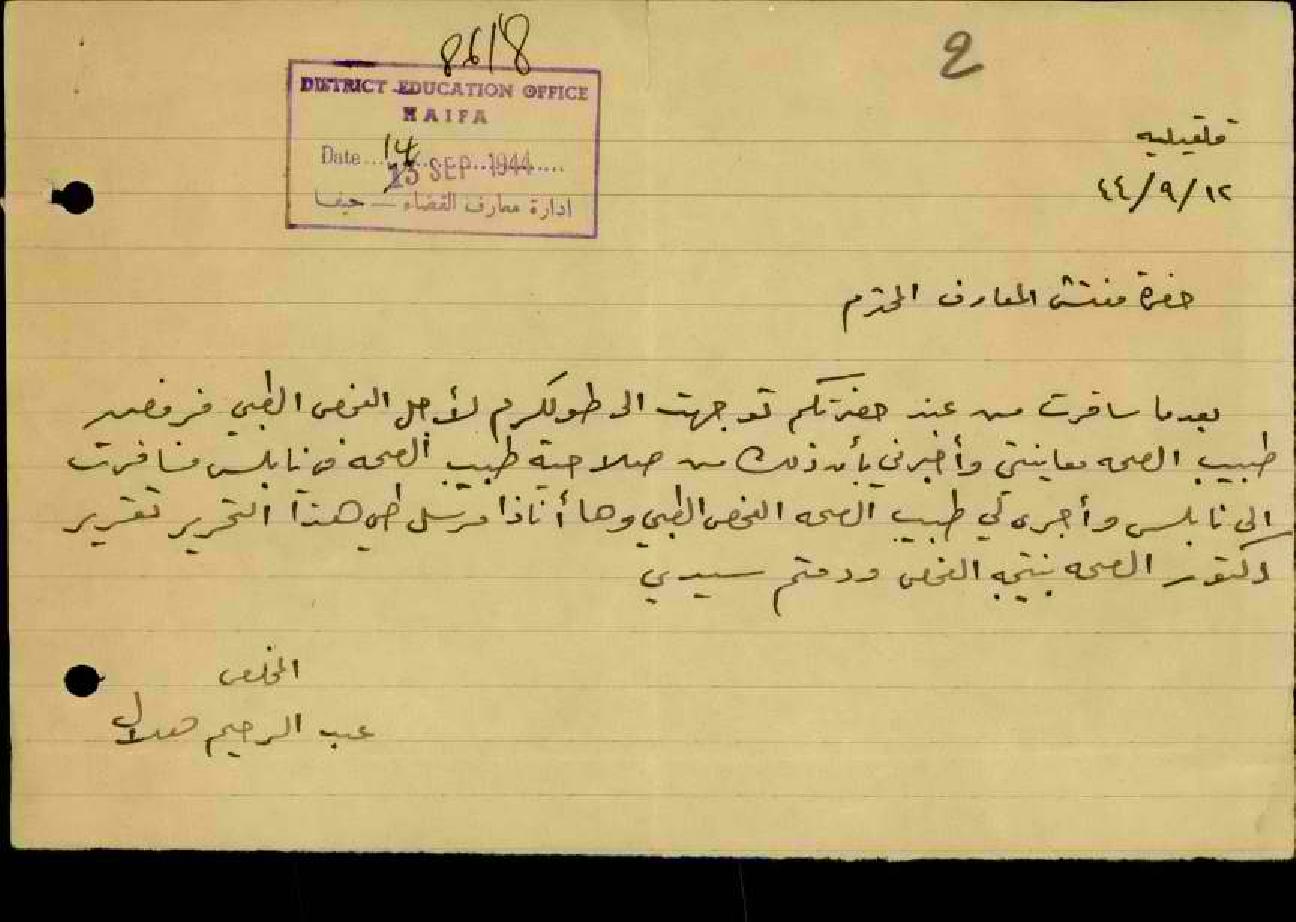 8618
2
DISTRICT EDUCATION OFFICE
HAIFA
Date 14 SEP 1944
ادارة معارف القضاء — حيفا
قلقيليه
١٢/٩/٤٤
حضرة مفتش المعارف المحترم
بعدما سافرت من عند حضرتكم توجهت الى طولكرم لأجل الفحص الطبي فرفض
طبيب الصحه معاينتي وأخبرني بأن ذلك من صلاحية طبيب الصحه في نابلس فسافرت
الى نابلس وأجرى لي طبيب الصحه الفحص الطبي وها أناذا مرسل طي هذا التحرير تقرير
دكتور الصحه بنتيجه الفحص ودمتم سيدي
المخلص
عبد الرحيم هلال